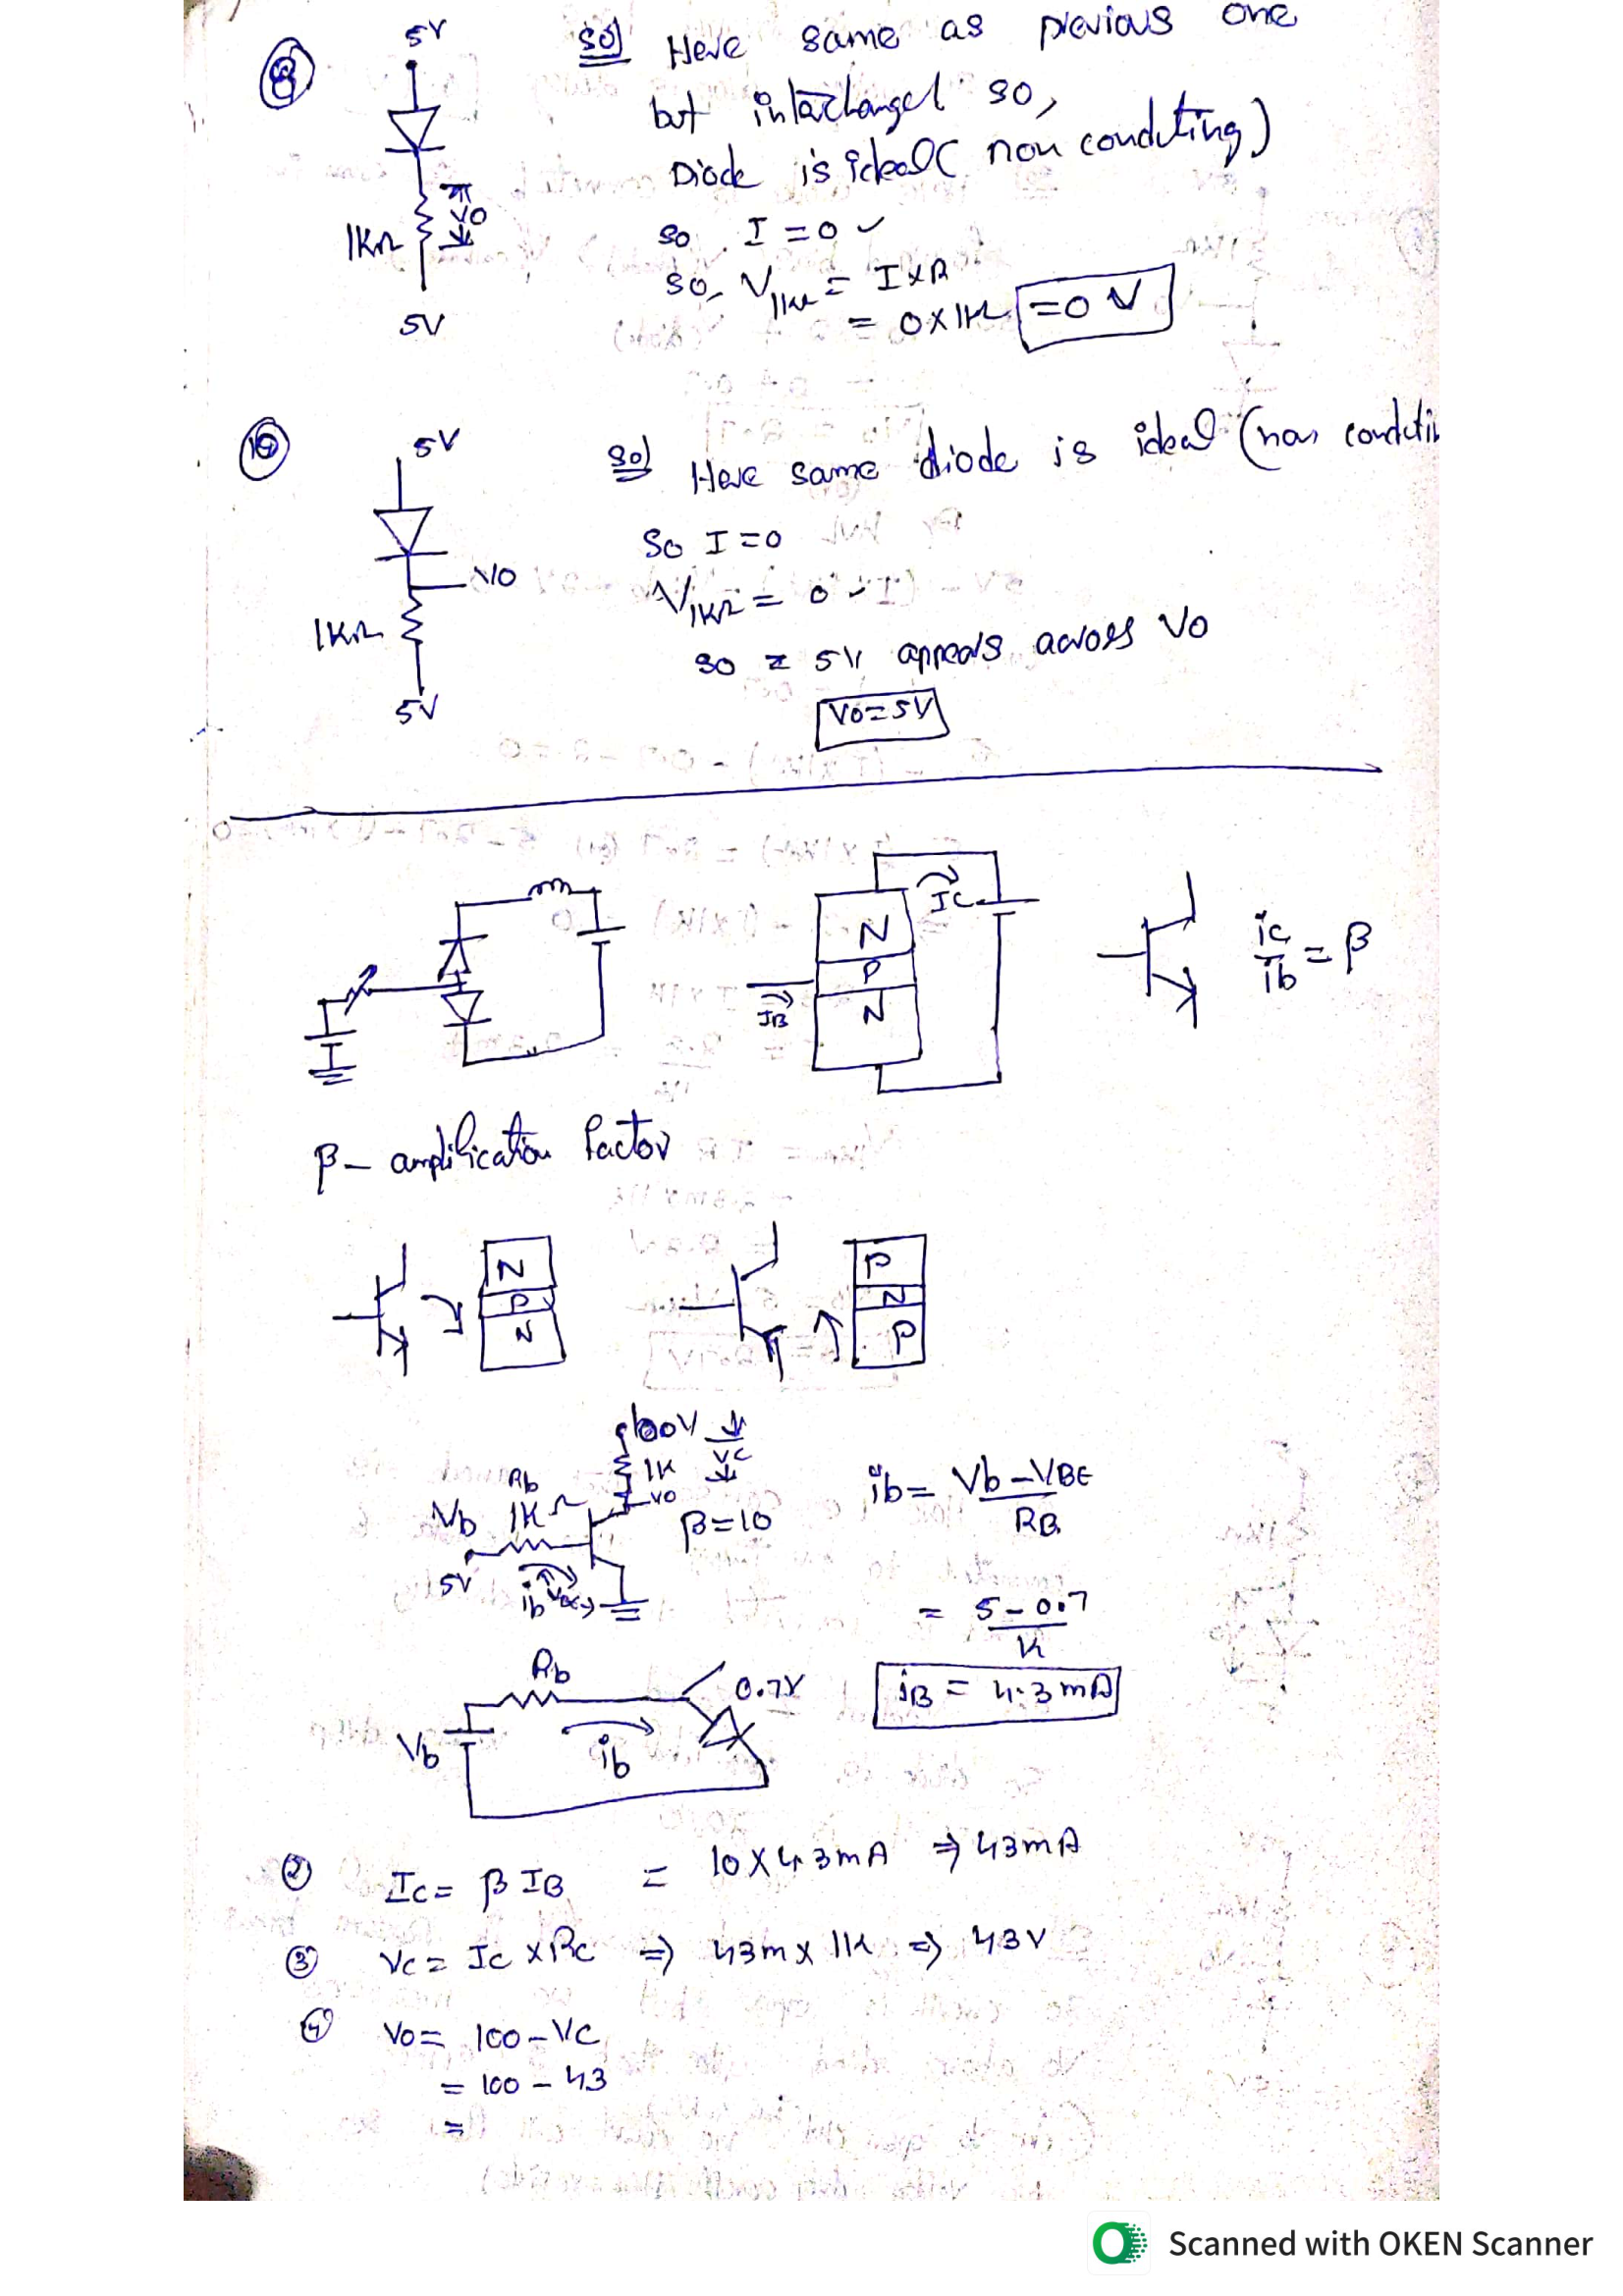 8
5V
1KΩ
VO
5V
Sol Here same as previous one
but interchanged so,
Diode is ideal ( non conducting)
so I = 0
so, V1KΩ = I x R
= 0 x 1KΩ = 0 V
10
5V
VO
1KΩ
5V
Sol Here same diode is ideal (non
So I = 0
V1KΩ = 0
so = 5V appears across VO
VO = 5V
N
P
N
IC
IB
ic/ib = β
β - amplification factor
N
P
N
P
N
P
100V
VC
1K
VO
Rb
1KΩ
Vb
5V
ib
β = 10
ib = Vb - VBE / RB
= 5 - 0.7 / 1K
iB = 4.3 mA
Rb
0.7V
Vb
ib
2 IC = β IB = 10 X 4.3mA ⇒ 43mA
3 VC = IC x RC ⇒ 43m x 1K ⇒ 43V
4 VO = 100 - VC
= 100 - 43
=
Scanned with OKEN Scanner